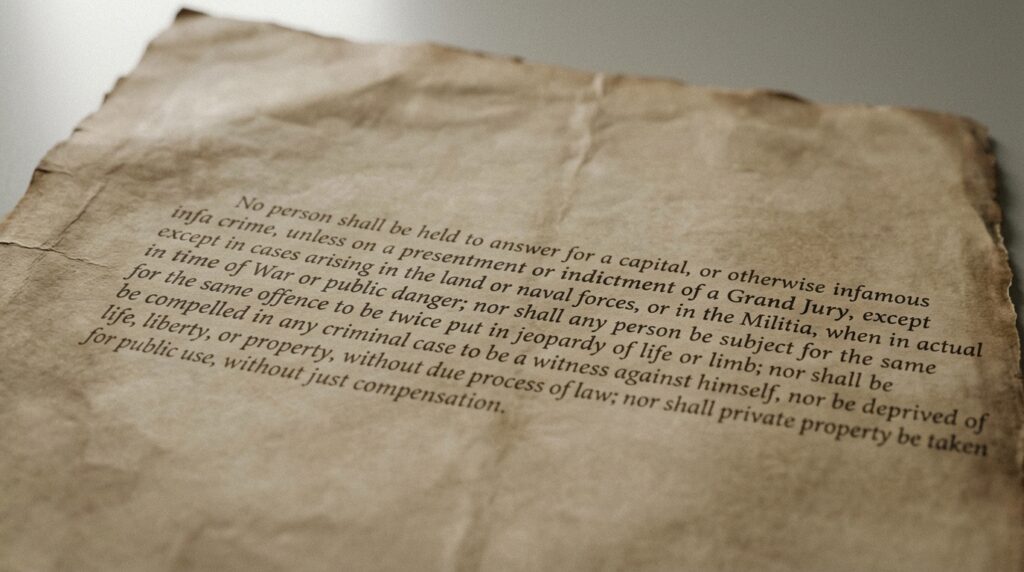 No person shall be held to answer for a capital, or otherwise infamous
infa crime, unless on a presentment or indictment of a Grand Jury, except
except in cases arising in the land or naval forces, or in the Militia, when in actual
in time of War or public danger; nor shall any person be subject for the same
for the same offence to be twice put in jeopardy of life or limb; nor shall be
be compelled in any criminal case to be a witness against himself, nor be deprived of
life, liberty, or property, without due process of law; nor shall private property be taken
for public use, without just compensation.